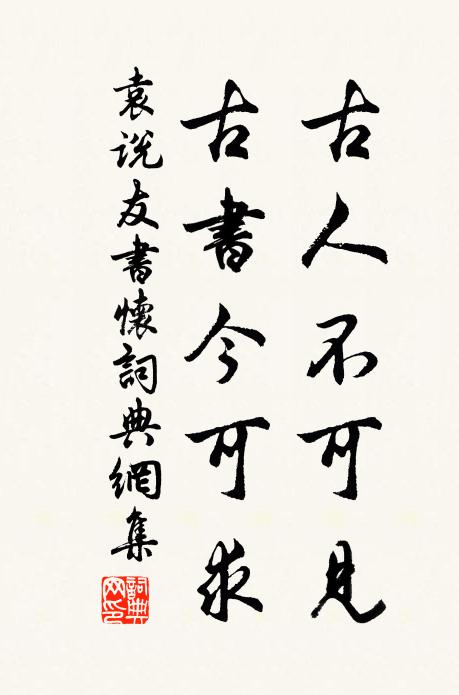 古人不可見
古書今可求
袁说友書懷詞典網集
詞典網印